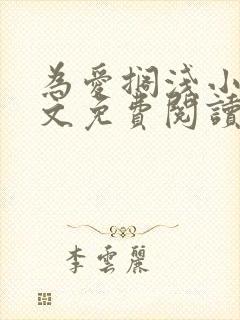 為愛擱淺小
文免費閱讀
李雲麗